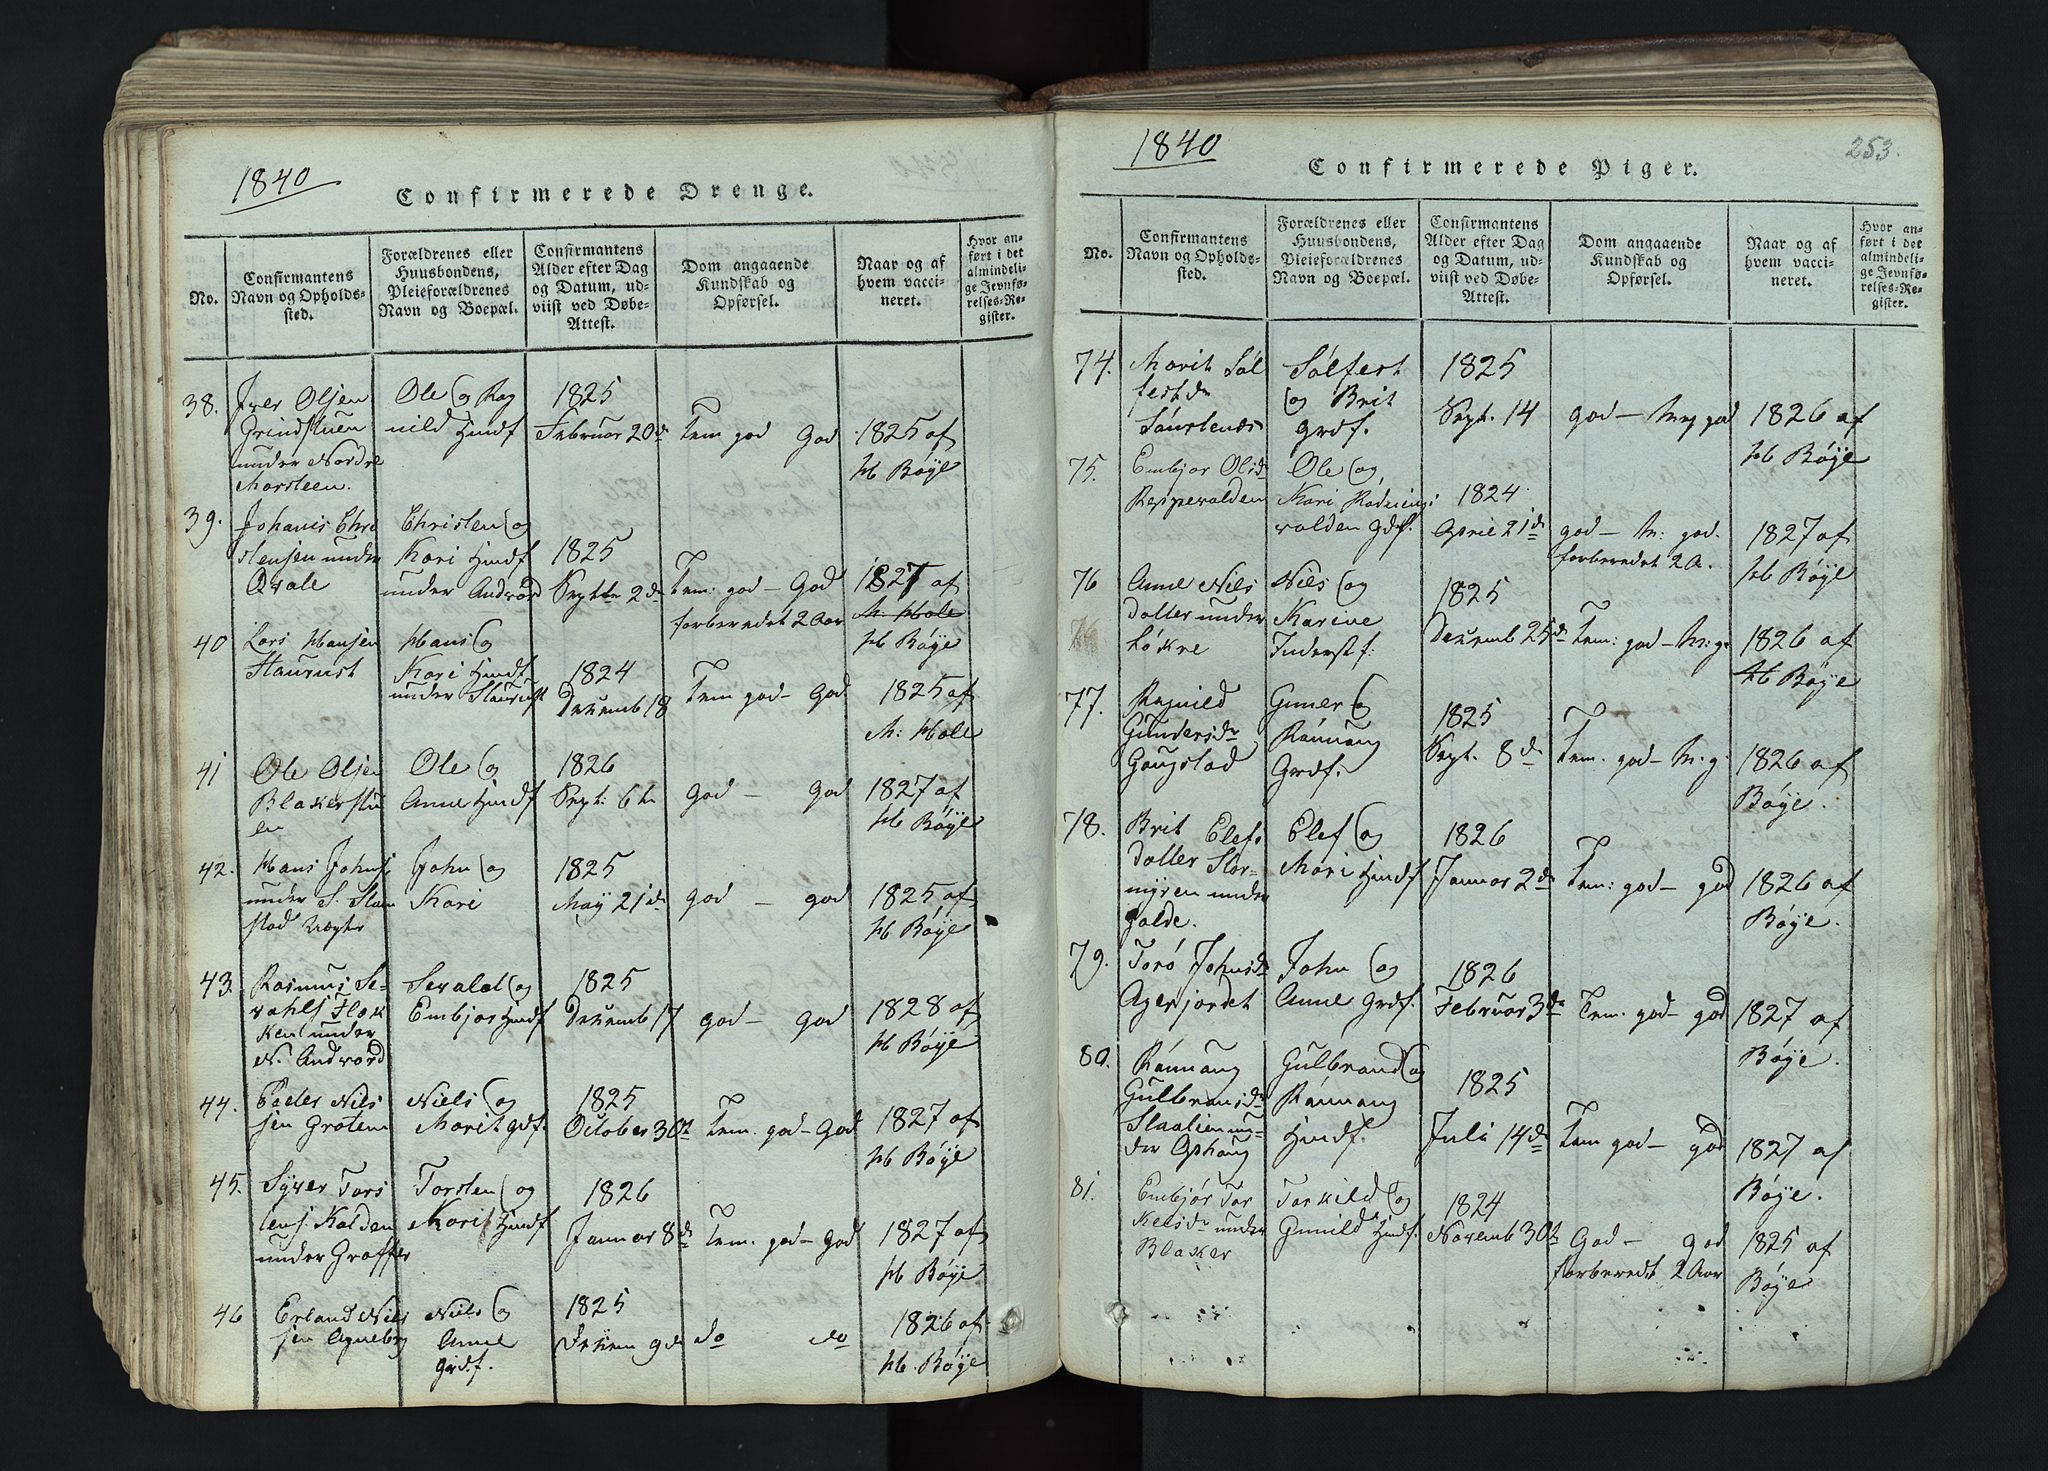 1840
Confirmerede Drenge.
No.
Confirmantens
Navn og Opholds-
sted.
Forældrenes eller
Huusbondens,
Pleieforældrenes
Navn og Boepæl.
Confirmantens
Alder efter Dag
og Datum, ud-
viist ved Døbe-
Attest.
Dom angaaende
Kundskab og
Opførsel.
Naar og af
hvem vacci-
neret.
Hvor an-
ført i det
almindeli-
ge Jevnfø-
relses-Re-
gister.
38.
Iver Olsen
Grindstuen
under Nordre
Marsteen.
Ole og Rag
nild Hmdf
1825
Februar 20de
Tem god God
1825 af
Hb Bøye
39.
Johanis Chri
stensen under
Qvale
Christen og
Kari Hmdf
under Andvord
1825
Septbr 2de
Tem: god - God
forberedet 2 Aar
1827 af
M: Hole
Hb Bøye
40
Lars Hansen
Staurust
Hans og
Kari Hmdf
under Staurust
1824
Decemb 18
Tem god - God
1825 af
M: Hole
41
Ole Olsen
Blakerstu
en
Ole og
Anne Hmdf
1826
Sept: 6te
god - god
1827 af
Hb Bøye
42.
Hans Johns:
under S. Stam
stad
John og
Kari
1825
May 21de
god - god
1825 af
Hb Bøye
43.
Rasmus Se-
valds Flæk
ken under
N. Andvord
Sevald og
Embjør Hmdf
1825
Decemb 17
god - god
1828 af
Hb Bøye
44.
Peder Niel
sen Grøtem
Niels og
Marit gdf.
1825
October 30t
Tem. god - God
1827 af
Hb Bøye
45.
Syver Tors
tens. Kolden
under Graffer
Torsten og
Mari Hmdf
1826
Januar 8de
Tem. god - God
1827 af
Hb Bøye
46
Erland Niel
sen Agneberg
Niels og
Anne
Grdf.
1825
Decem 9de
do do
1826 af
Hb. Bøye
1840
253.
Confirmerede Piger.
No.
Confirmantens
Navn og Opholds-
sted.
Forældrenes eller
Huusbondens,
Pleieforældrenes
Navn og Boepæl.
Confirmantens
Alder efter Dag
og Datum, ud-
viist ved Døbe-
Attest.
Dom angaaende
Kundskab og
Opførsel.
Naar og af
hvem vacci-
neret.
Hvor an-
ført i det
almindeli-
ge Jevnfø-
relses-Re-
gister.
74.
Marit Søl
festdr
Sølfest
og Brit
Grdf.
1825
Sept. 14
god - Meg god
1826 af
Hb Bøye
75.
Embjør Olsdr
Ole og
Kari
valden Gdf.
1824
April 21de
god - M: god.
forberedet 2 A.
1827 af
Hb Bøye
76
Anne Niels
datter under
Løkre
Niels og
Karine
Inderst f:
1825
Decemb 25de
Tem: god - M: g.
1826 af
Hb Bøye
77.
Ragnild
Gundersdr
Gaugstad
Guner og
Rønnaug
Grdf.
1825
Sept. 8de
Tem. god - M. g.
1826 af
Bøye.
78.
Brit Elefs
datter Stor-
myren under
Galde.
Elef og
Mari Hmdf
1826
Januar 2de
Tem: god - god
1826 af
Bøye.
79.
Torø Johnsdr
Agerjordet
John og
Anne Grdf.
1826
Februar 3de
Tem. god - god
1827 af
Bøye.
80.
Rønnaug
Gulbransdr
Slaalien un-
der Ophaug
Gulbrand og
Rønnaug
Hmdf.
1825
Juli 14de
Tem god - god
1827 af
Bøye.
81.
Embjør Tor
kelsdr under
Blaker
Torkild og
Gunild Hmdf.
1824
Novemb 30te
God - god
forberedt 2 Aar
1825 af
Bøye